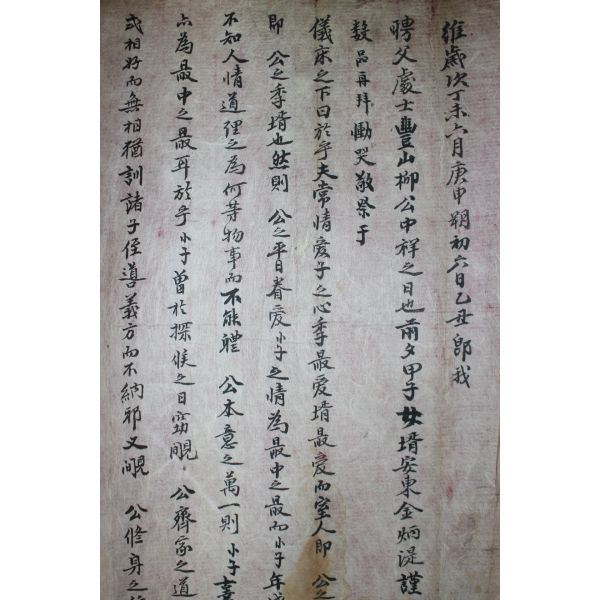 維歲次丁未六月庚申朔初六日乙丑即我
聘父處士豐山柳公中祥之日也前夕甲子女壻安東金炳湜謹
數品再拜慟哭敬祭于
儀床之下曰於乎夫常情愛子之心季最愛壻最愛而室人即 公之
即 公之季壻也然則 公之平日眷愛小子之情為最中之最而小子年
不知人情道理之為何等物事而不能體 公本意之萬一則 小子
亦為最中之最耳於乎小子曾於探候之日窃覸 公齊家之道
式相好而無相猶訓諸子侄導義方而不納邪又覸 公修身之